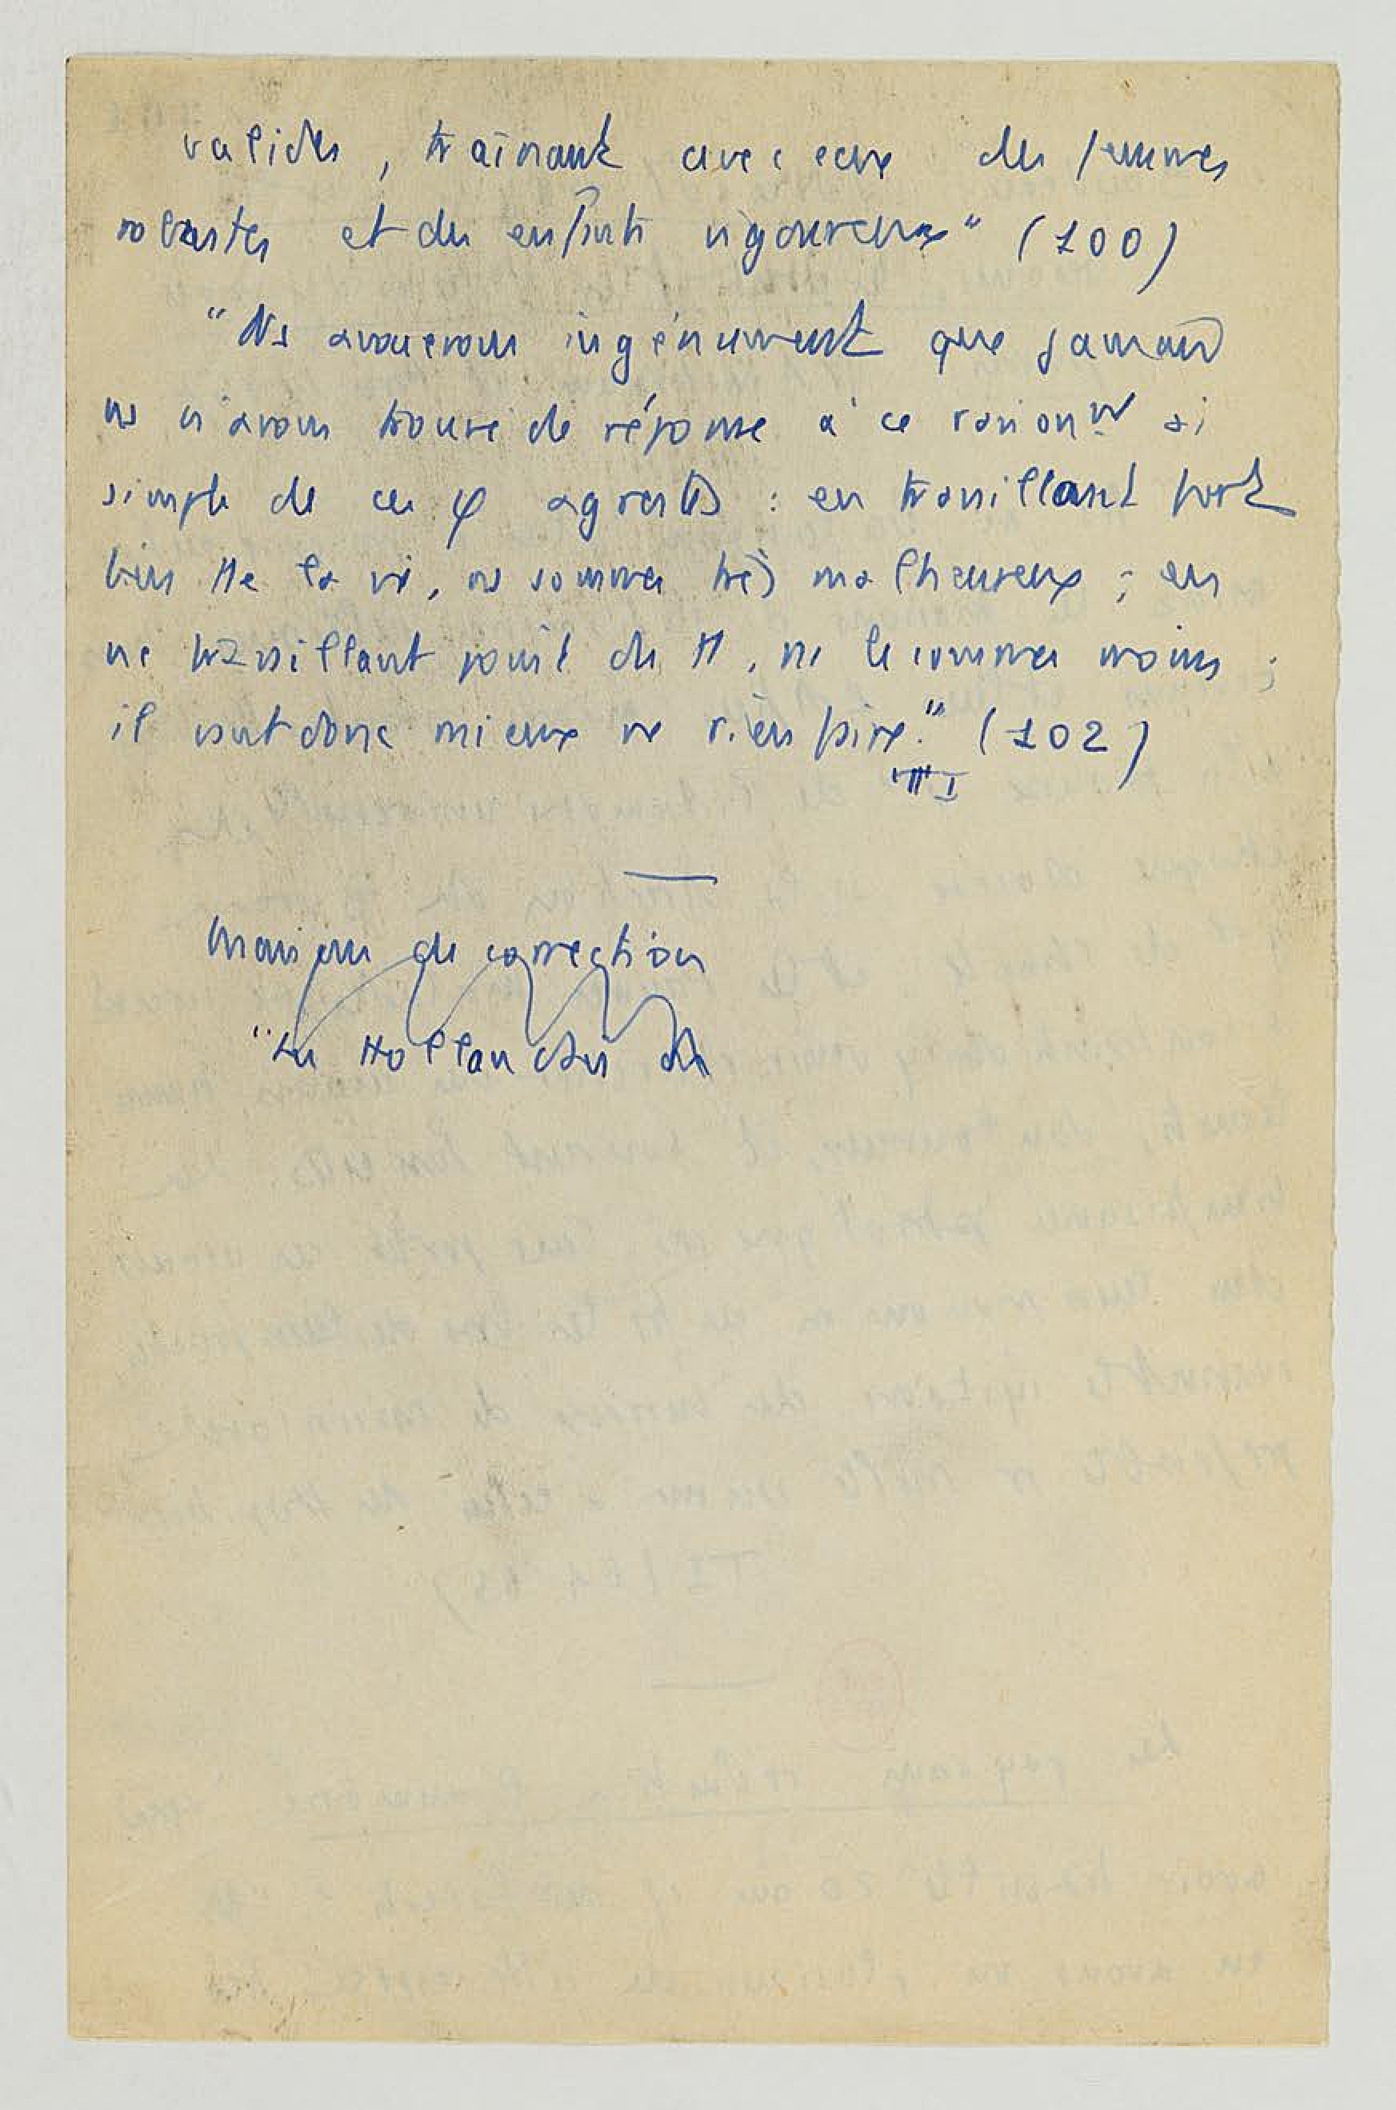 valides, traînant avec eux des femmes
robustes et des enfants vigoureux" (100)
"Ns avouerons ingénument que jamais
ns n'avons trouvé de réponse à ce raisonnt si
simple de ces φ agrestes : en travaillant fort
bien tte la vie, ns sommes très malheureux ; en
ne travaillant point du tt, ns le sommes moins ;
il vaut donc mieux ne rien faire." (102)
T I
Maison de correction
"Les Hollandais